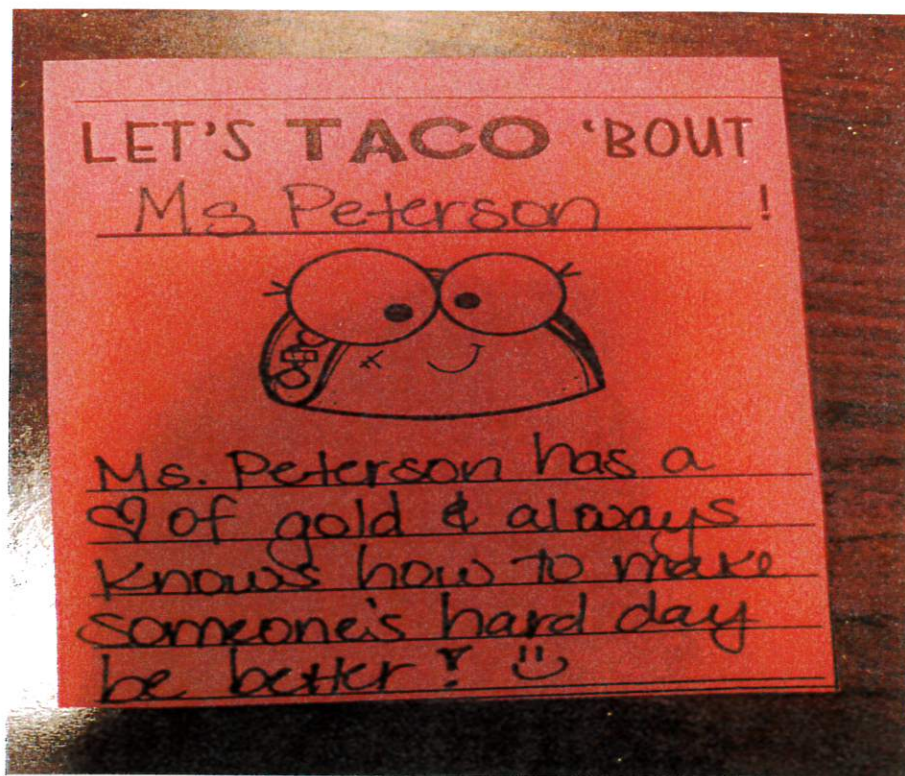 LET'S TACO 'BOUT
Ms Peterson !
Ms. Peterson has a
♡ of gold & always
knows how to make
someone's hard day
be better! :)